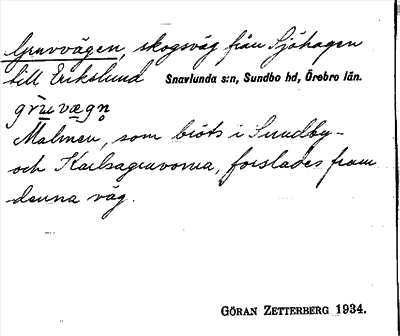 Gruvvägen, skogsväg från Sjöhagen
till Erikslund Snavlunda s:n, Sundbo hd, Örebro län.
grùvægn̥
Malmen, som bröts i Sundby-
och Karlsagruvorna, forslades fram
denna väg.
GÖRAN ZETTERBERG 1934.